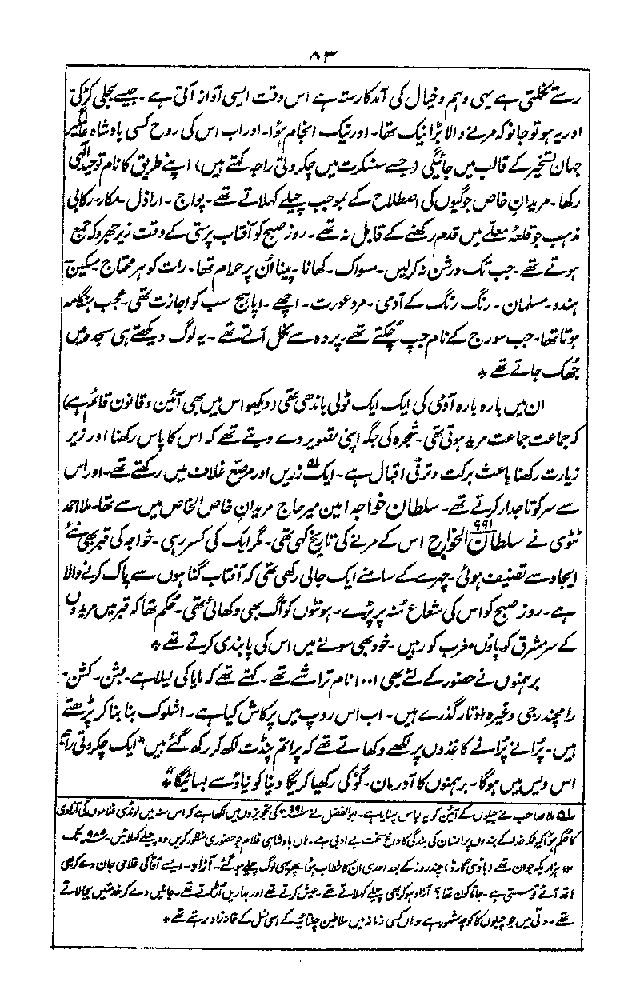 ۸۳
رستے نکلتی ہے یہی وہم و خیال کی آمد کا رستہ ہے اس وقت ایسی آواز آتی ہے۔ جیسے بجلی کڑکی
اور یہ ہو تو جانو کہ مرنے والا بڑا نیک تھا۔ اور نیک انجام ہوا۔ اور اب اس کی روح کسی بادشاہ عالمگیر
جہان تسخیر کے قالب میں جائیگی (جسے سنسکرت میں چکرورتی راجہ کہتے ہیں) اپنے طریق کا نام توحید الٰہی
رکھا۔ مریدانِ خاص جوگیوں کی اصطلاح کے بموجب چیلے کہلاتے تھے۔ پواج۔ ارذل۔ مکار۔ رکابی
مذہب جو قلعۂ معلےٰ میں قدم رکھنے کے قابل نہ تھے۔ روز صبح کو آفتاب پرستی کے وقت زیر جھروکہ جمع
ہوتے تھے۔ جب تک درشن نہ کرلیں۔ مسواک۔ کھانا۔ پینا اُن پر حرام تھا۔ رات کو ہر محتاج مسکین
ہندو۔ مسلمان۔ رنگ رنگ کے آدمی۔ مرد عورت۔ اچھے۔ اپاہج سب کو اجازت تھی۔ عجب ہنگامہ
ہوتا تھا۔ جب سورج کے نام جپ چکتے تھے۔ پردہ سے نکل آتے تھے۔ یہ لوگ دیکھتے ہی سجدہ میں
جھک جاتے تھے ٭
ان میں بارہ بارہ آدمی کی ایک ایک ٹولی باندھی تھی (دیکھو اس میں بھی آئین و قانون قائم ہے)
کہ جماعت جماعت مرید ہوتی تھی۔ شجرہ کی جگہ اپنی تصویر دے دیتے تھے کہ اس کا پاس رکھنا اور زیر
زیارت رکھنا باعث برکت و ترقی اقبال ہے۔ ایک زریں اور مرصع غلاف میں رکھتے تھے۔ اور اس
سے سر کو تاجدار کرتے تھے۔ سلطان خواجہ امین میر حاج مریدان خاص الخاص میں سے تھا۔ ملا احمد
ٹتوی نے سلطان الخوارج ۹۹۱ اس کے مرنے کی تاریخ کہی تھی۔ مگر ایک کی کسر رہی۔ خواجہ کی قبر بھی نئے
ایجاد سے تصنیف ہوئی۔ چہرے کے سامنے ایک جالی رکھی تھی کہ آفتاب گناہوں سے پاک کرنے والا
ہے۔ روز صبح کو اس کی شعاع منہ پر پڑے۔ ہونٹوں کو آگ بھی دکھائی تھی۔ حکم تھا کہ قبر میں مریدوں
کے سر مشرق کو پاؤں مغرب کو رہیں۔ خود بھی سونے میں اس کی پابندی کرتے تھے ٭
برہمنوں نے حضور کے لئے بھی ۱۰۰۱ نام تراشے تھے۔ کہتے تھے کہ مایا کی لیلا ہے۔ بشن۔ کشن۔
رامچندر جی وغیرہ اوتار گذرے ہیں۔ اب اس روپ میں پرکاش کیا ہے۔ اشلوک بنا بنا کر پڑھتے
ہیں۔ پرانے پرانے کاغذوں پر لکھے دکھاتے تھے کہ پراتم پنڈت لکھ کر رکھ گئے ہیں ایک چکرورتی راجہ
اس دیس میں ہوگا۔ برہمنوں کا آدرمان۔ گؤ کی رکھیا کریگا دنیا کو نیاؤ سے بسائیگا ٭
صاحب نے چیلوں کے آئین کو ابوالفضل نے لکھا ہے کہ اس سنہ میں لونڈی غلاموں کی آزادی
کا حکم ہوا کیونکہ خدا کے بندوں پر انسان کی بندگی کا داغ سخت بے ادبی ہے۔ ہاں بادشاہی غلام جو حضوری منظور کریں وہ چیلے کہلائیں۔ ۹۸۵ تک
چند روز کے بعد احدی ان کا خطاب ہوا۔ پھر یہی لوگ چیلے ہو گئے۔ آزاد۔ ایسے آقا کی غلامی جان دے کر بھی
ہاتھ آئے تو سستی ہے۔ جاتا کون تھا؟ آزاد ہو کر بھی چیلے کہلاتے تھے۔ عیش کرتے تھے اور بہاریں اڑاتے تھے۔ جانیں دے کر خدمتیں بجا لاتے
تھے۔ دلی میں جو چیلوں کا کوچہ مشہور ہے وہاں کسی زمانہ میں سلاطین چغتائیہ کے اسی نسل کے خانہ زاد رہتے تھے ٭